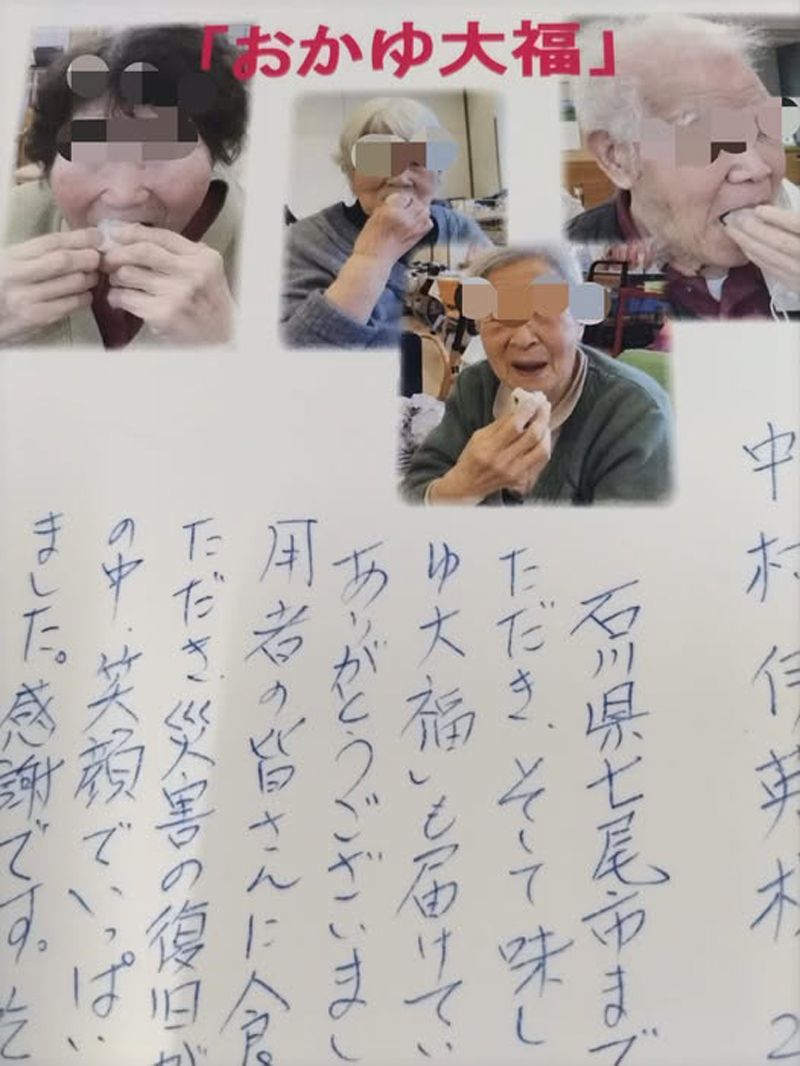 「おかゆ大福」
中村伊英様 2
石川県七尾市まで
ただき、そして味し
ゆ大福」も届けてい
ありがとうございまし
用者の皆さんに食。
ただき、災害の復旧が
の中、笑顔でいっぱい
ました。感謝です。